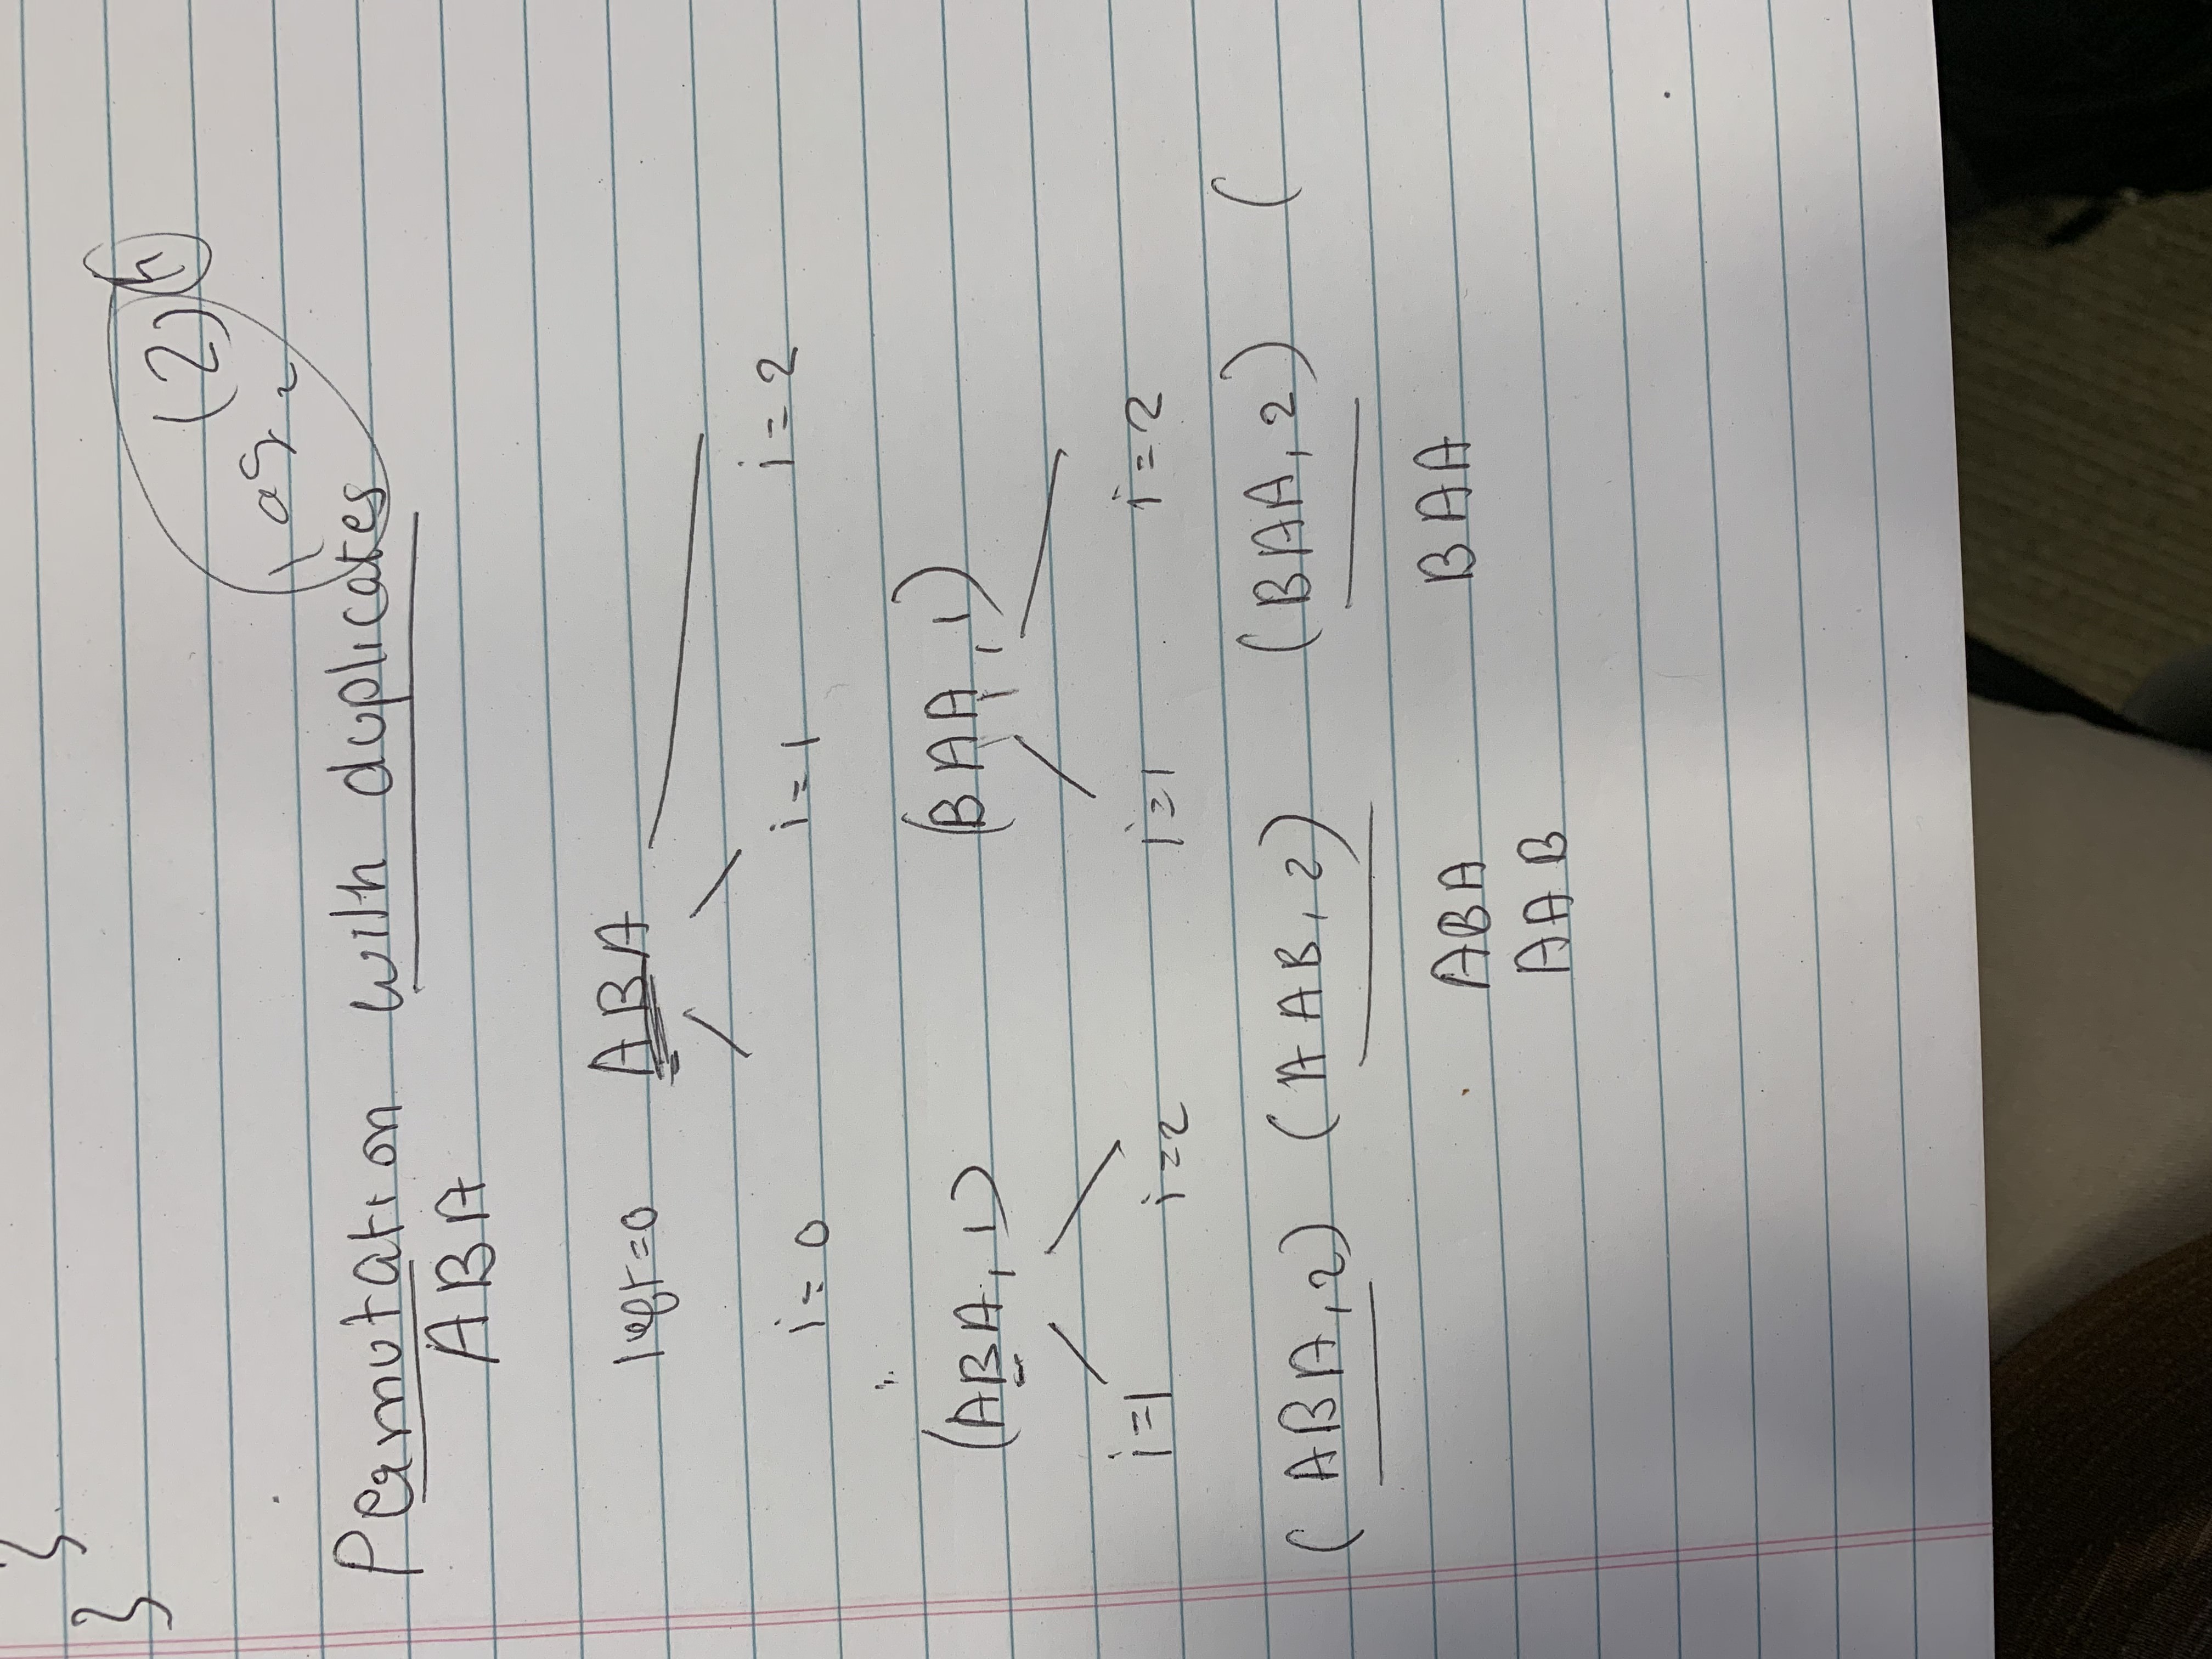 }
}
(2)^n
log_2
Permutation with duplicates
ABA
left=0 ABA
i=0 i=1 i=2
(ABA,1) (BAA,1)
i=1 i=2 i=1 i=2
(ABA,2) (AAB,2) (BAA,2) (
ABA BAA
AAB